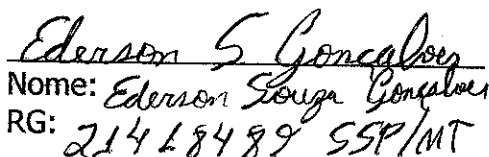 Ederson S Gonçalves
Nome: Ederson Souza Gonçalves
RG: 21418489 SSP/MT